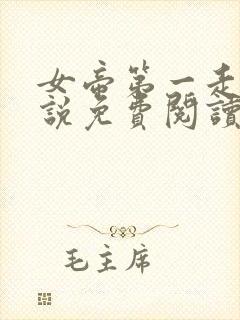 女帝第一走
說免費閱讀
毛主席